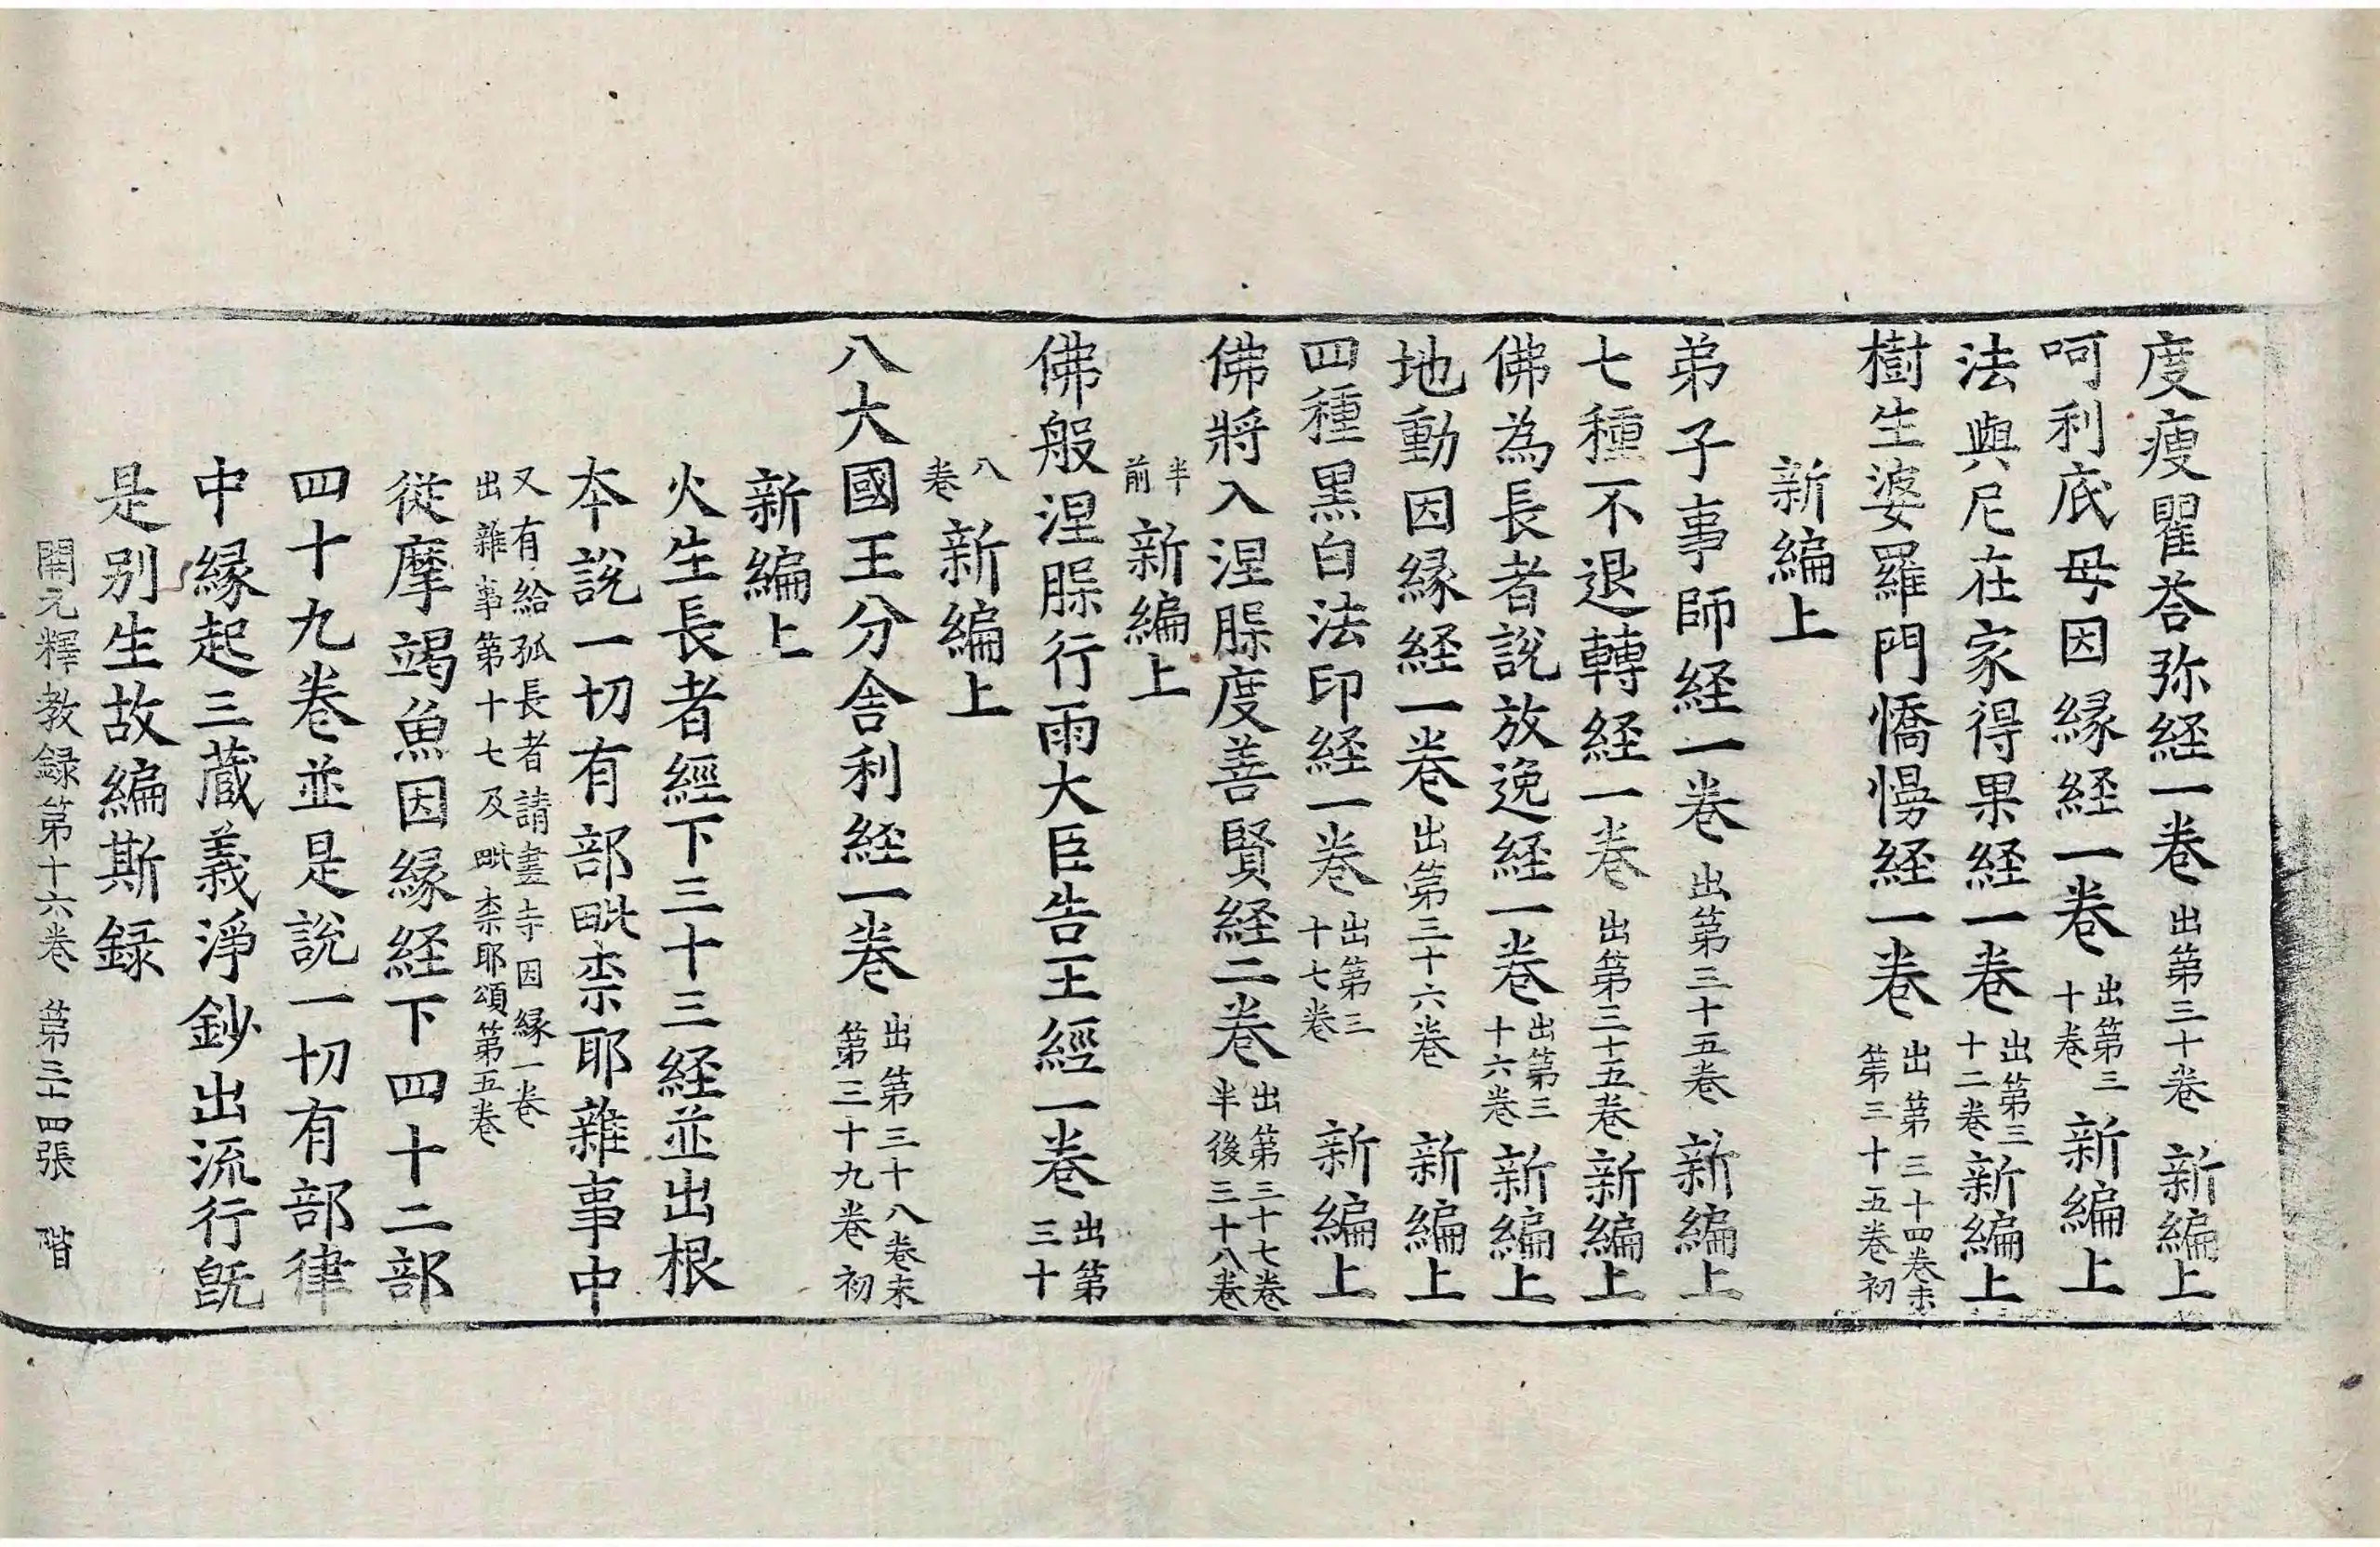 度瘦瞿荅弥経一卷出第三十卷新編上
呵利底母因縁経一卷出第三十卷新編上
法與尼在家得果経一卷出第三十二卷新編上
樹生婆羅門憍慢経一卷出第三十四卷末第三十五卷初
新編上
弟子事師経一卷出第三十五卷新編上
七種不退轉経一卷出第三十五卷新編上
佛為長者說放逸経一卷出第三十六卷新編上
地動因縁経一卷出第三十六卷新編上
四種黒白法印経一卷出第三十七卷新編上
佛將入涅槃度善賢経二卷出第三十七卷半後三十八卷
半前新編上
佛般涅槃行雨大臣告王經一卷出第三十
八卷新編上
八大國王分舍利経一卷出第三十八卷末第三十九卷初
新編上
火生長者經下三十三経並出根
本說一切有部毗柰耶雜事中
又有給孤長者請畫寺因縁一卷出雜事第十七及毗柰耶頌第五卷
從摩竭魚因縁経下四十二部
四十九卷並是說一切有部律
中縁起三蔵義淨鈔出流行旣
是别生故編斯録
開元釋教録第十六卷 第三十四張 階